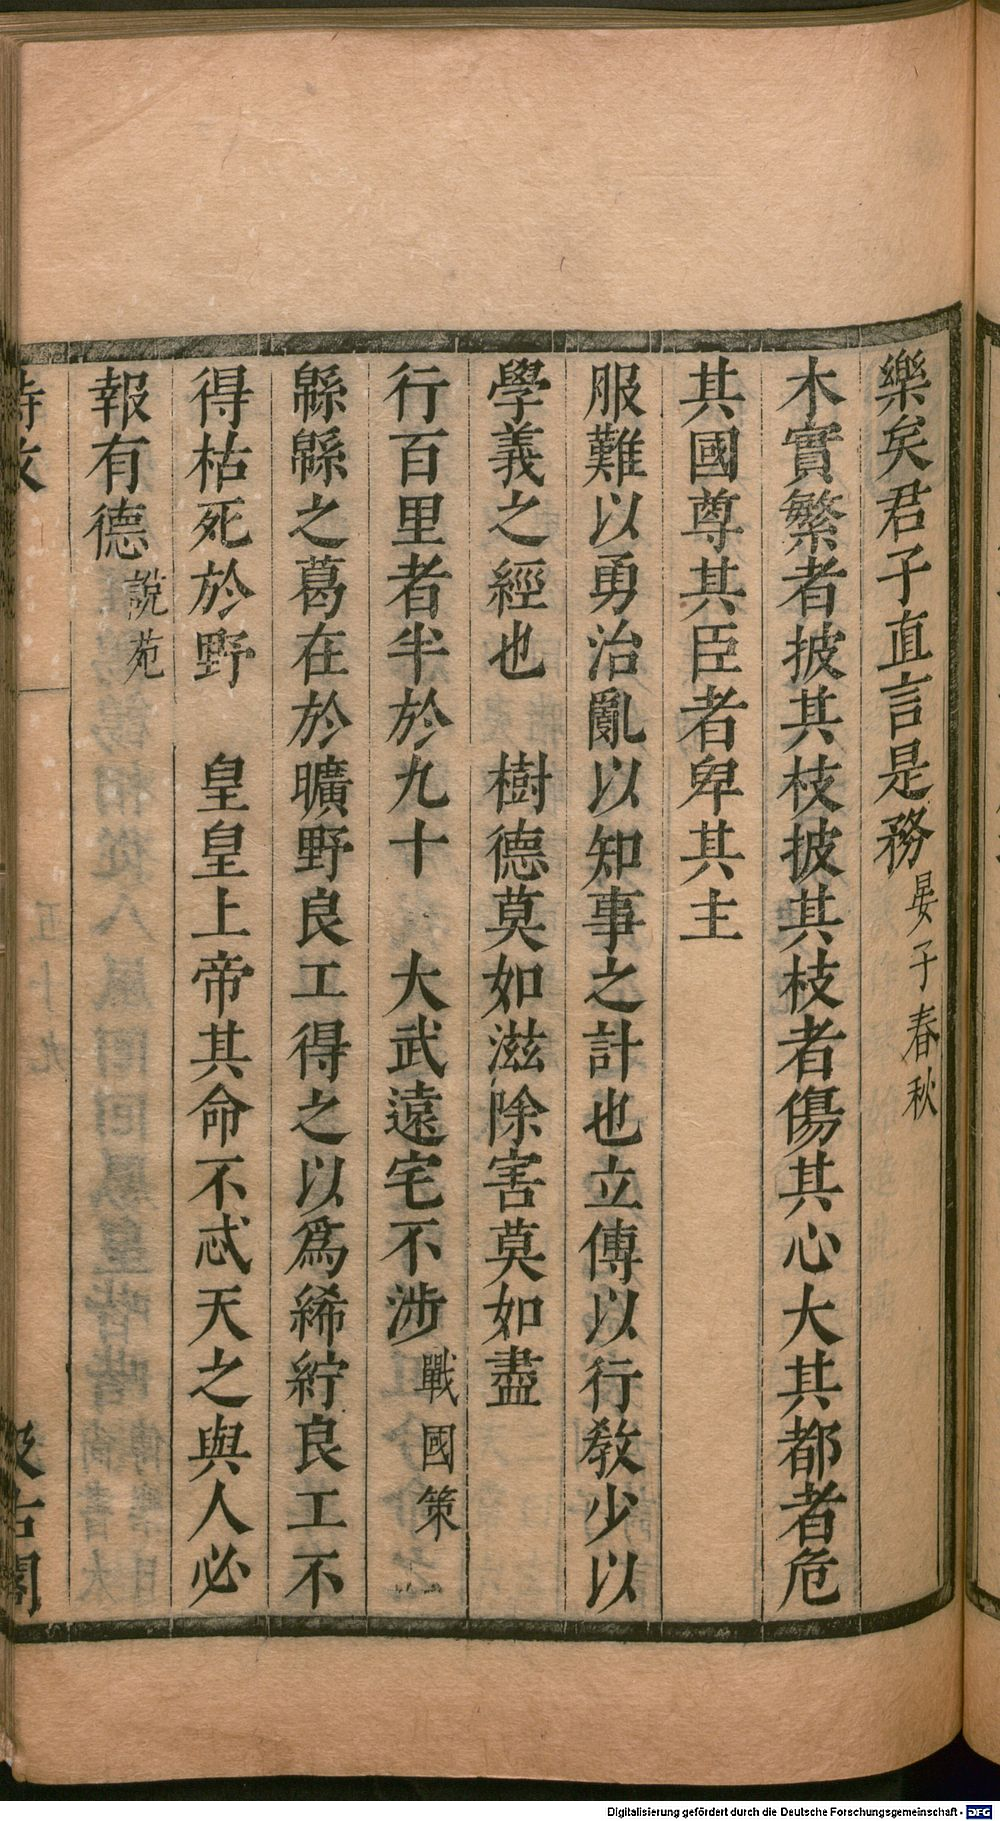 樂矣君子直言是務晏子春秋
木實繁者披其枝披其枝者傷其心大其都者危
其國尊其臣者卑其主
服難以勇治亂以知事之計也立傅以行教少以
學義之經也　樹德莫如滋除害莫如盡
行百里者半於九十　大武遠宅不涉戰國策
緜緜之葛在於曠野良工得之以爲絺紵良工不
得枯死於野　皇皇上帝其命不忒天之與人必
報有德說苑
Digitalisierung gefördert durch die Deutsche Forschungsgemeinschaft - DFG